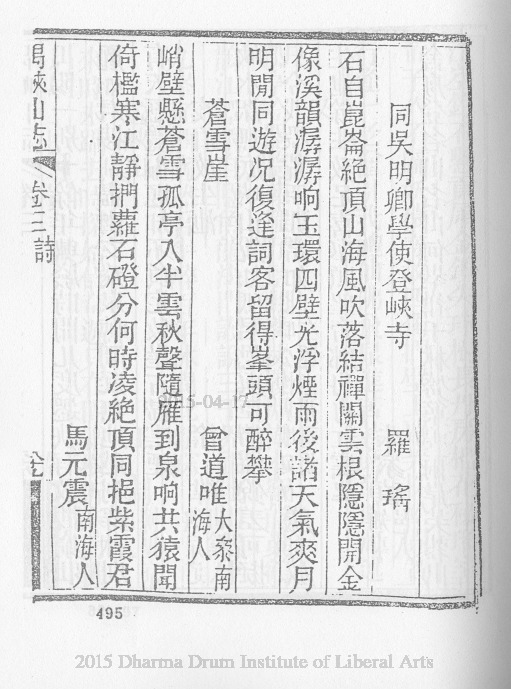 同吳明卿學使登峽寺　羅瑤
石自崑崙絕頂山海風吹落結禪關雲根隱隱開金
像溪韻潺潺响玉環四壁光浮煙雨後諸天氣爽月
明閒同遊况復逢詞客留得峯頭可醉攀
蒼雪崖　曾道唯大參南海人
峭壁懸蒼雪孤亭入半雲秋聲隨雁到泉响共猿聞
倚檻寒江靜捫蘿石磴分何時凌絕頂同挹紫霞君
馬元震南海人
禺峽山志 卷三 詩
495
2015-04-17
2015 Dharma Drum Institute of Liberal Arts